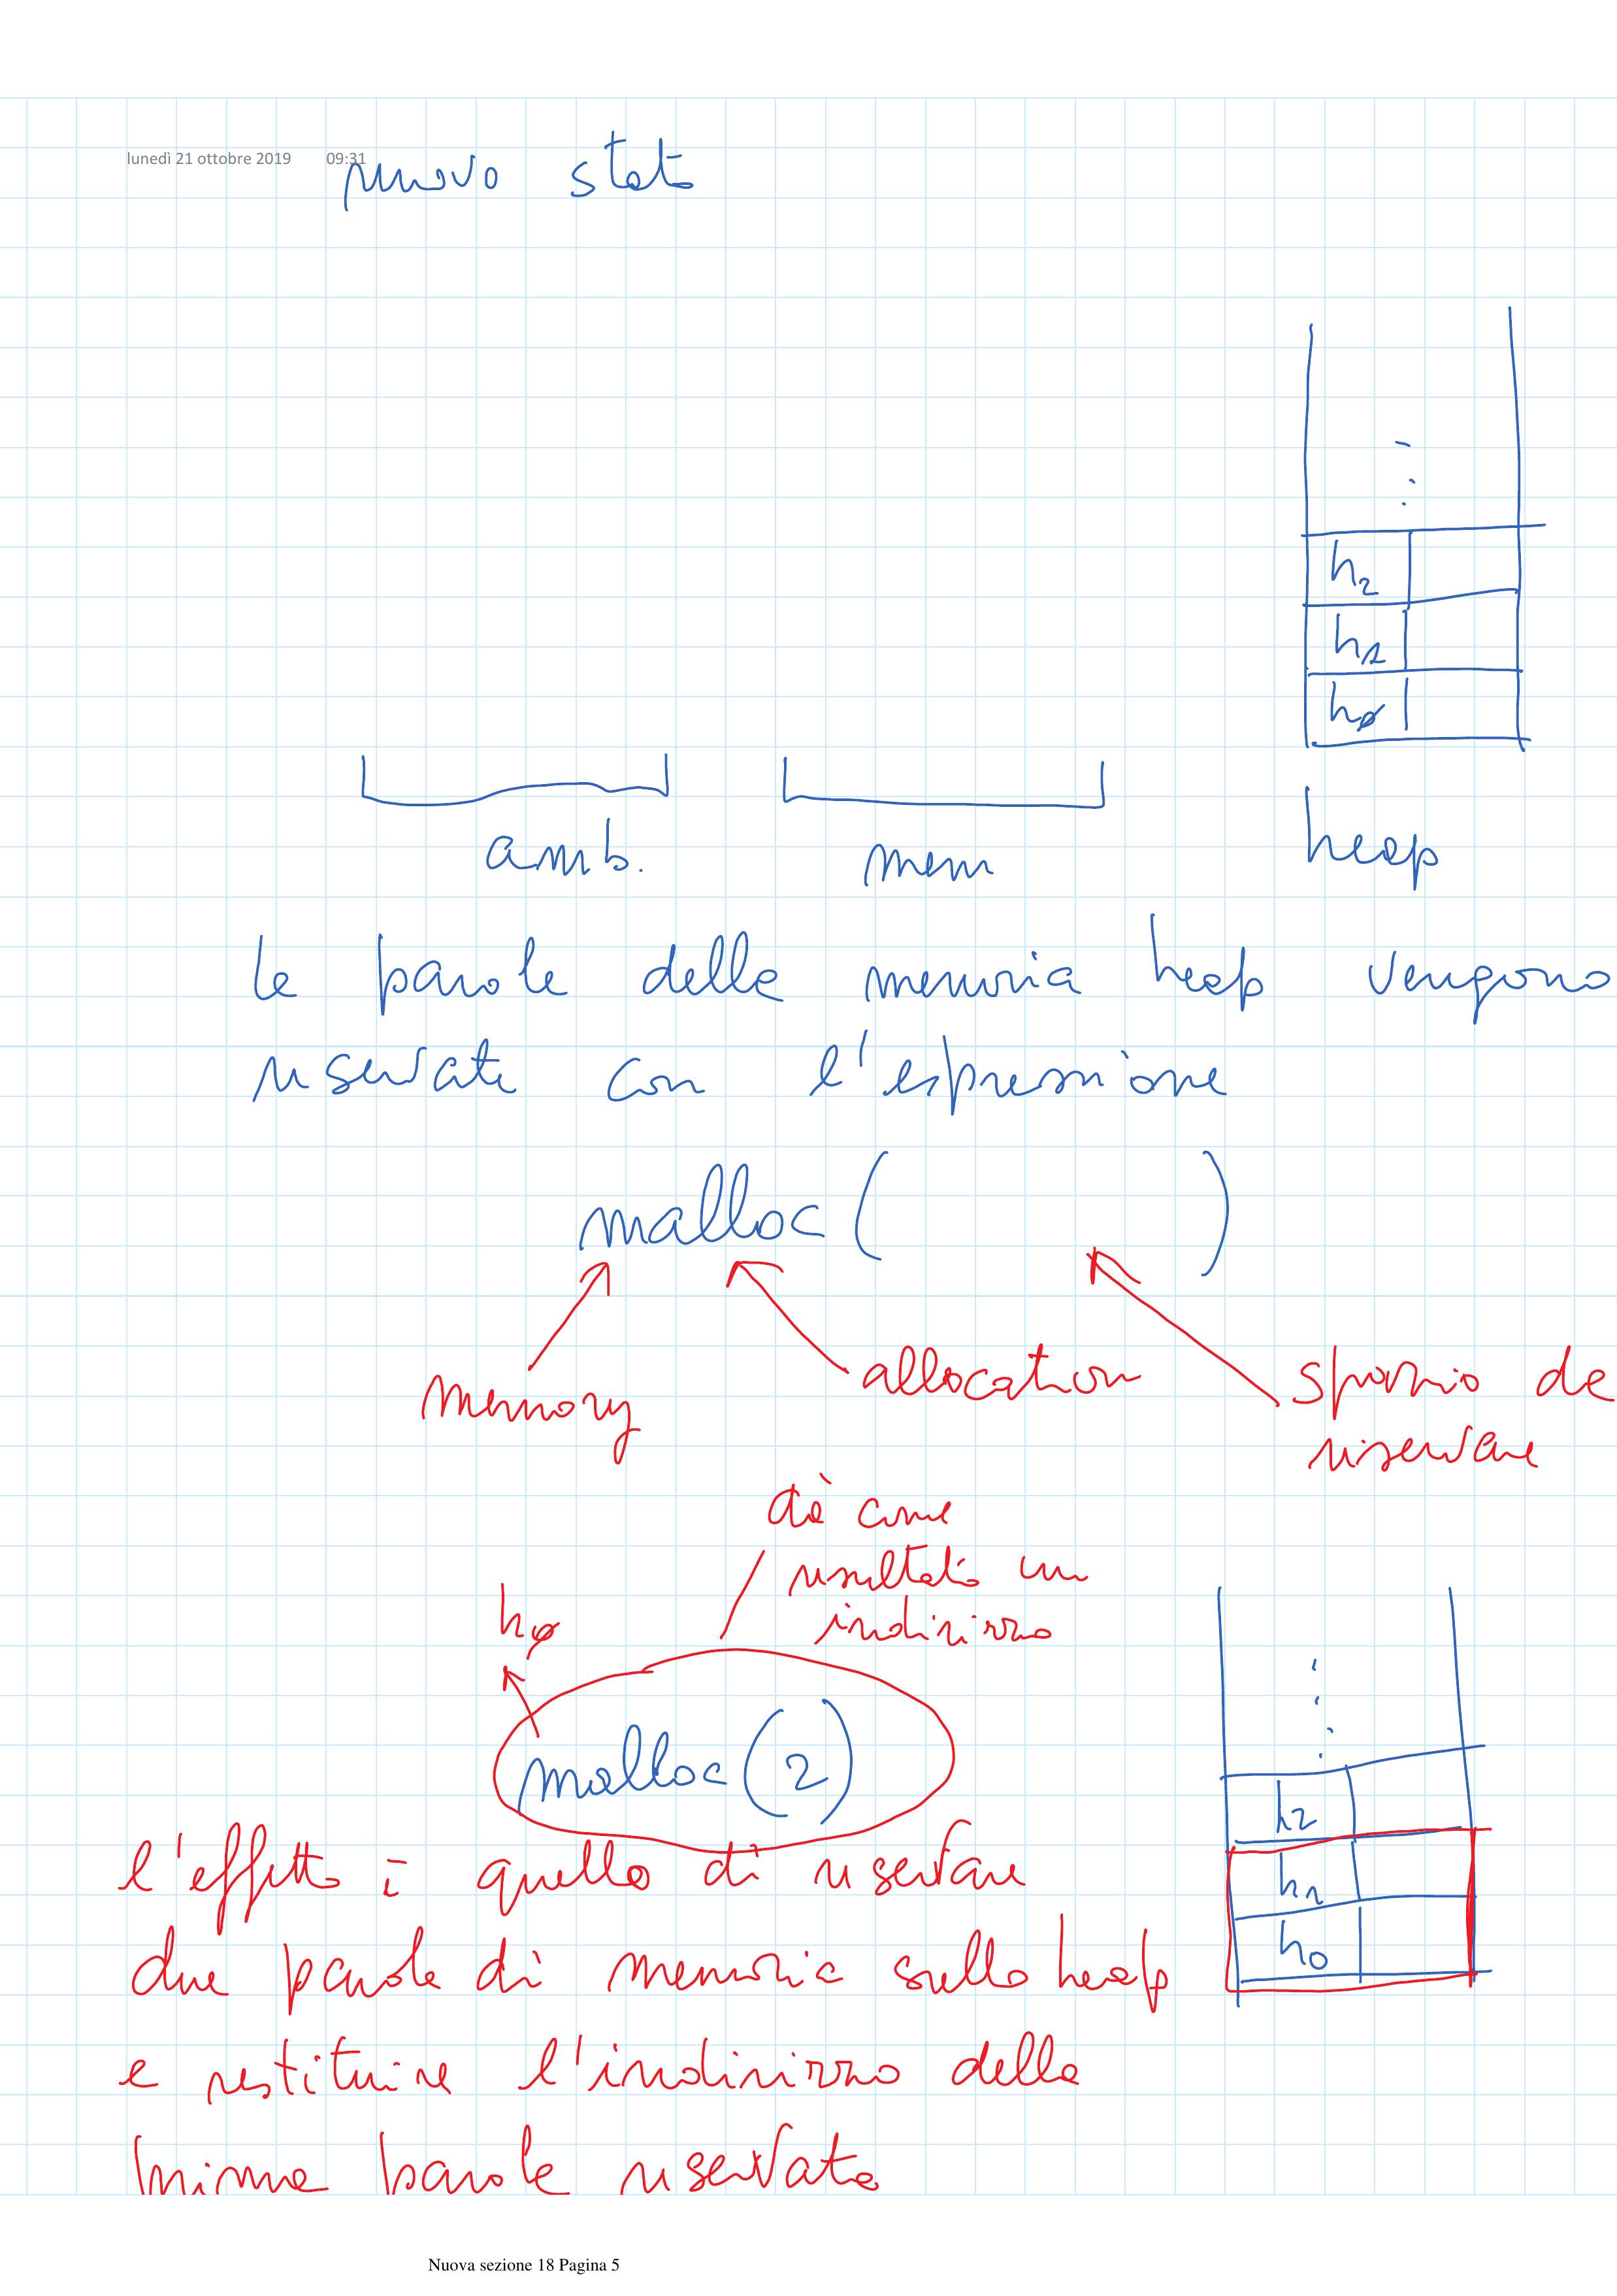 lunedì 21 ottobre 2019 09:31
nuovo stato
⋮
h₂
h₁
h∅
amb. mem heap
le parole della memoria heap vengono
riservate con l'espressione
malloc( )
memory allocation spazio da
riservare
dà come
risultato un
indirizzo
h∅
malloc(2)
⋮
h₂
h₁
h₀
l'effetto è quello di riservare
due parole di memoria sullo heap
e restituire l'indirizzo della
prima parola riservata
Nuova sezione 18 Pagina 5